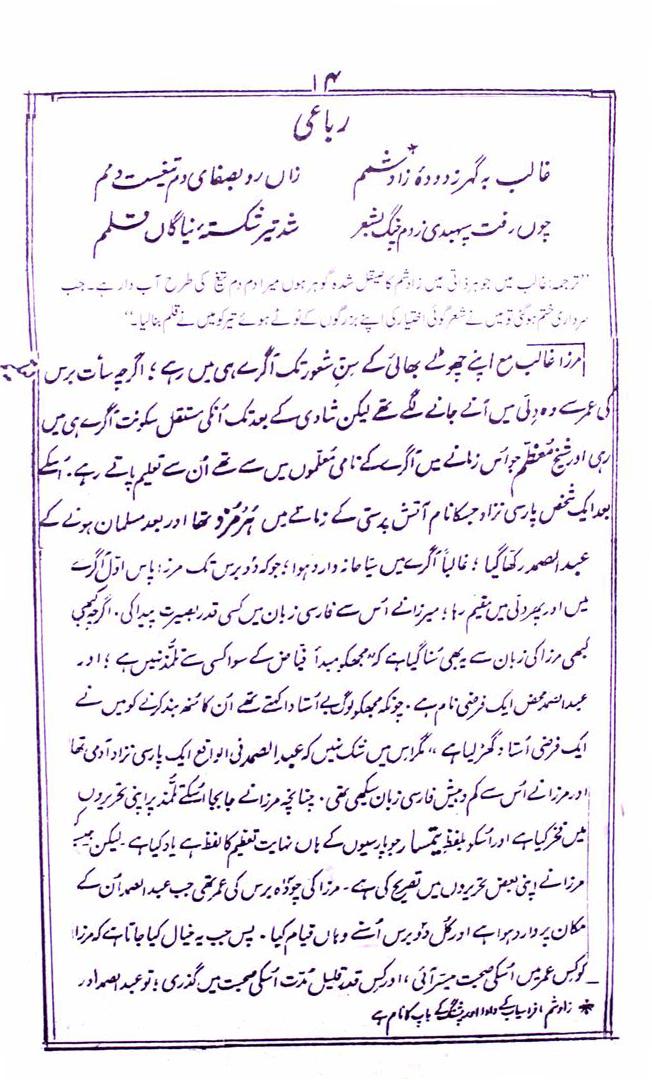 ۱۴
رباعی
غالب بہ گہر ز دودۂ زادشمم* زاں رو بصفای دم تیغست دمم
چوں رفت سپہبدی زدم چنگ بشعر شد تیر شکستۂ نیاگاں قلمم
"ترجمہ: غالب میں جوہر ذاتی میں زادشم کا صیقل شدہ گوہر ہوں میرا دم دم تیغ کی طرح آب دار ہے۔ جب
سرداری ختم ہو گئی تو میں نے شعر گوئی اختیار کی اپنے بزرگوں کے ٹوٹے ہوئے تیر کو میں نے قلم بنا لیا۔"
مرزا غالب مع اپنے چھوٹے بھائی کے سنِ شعور تک آگرے ہی میں رہے ؛ اگرچہ سات برس
کی عمر سے وہ دلی میں آنے جانے لگے تھے لیکن شادی کے بعد تک اُنکی مستقل سکونت آگرے ہی میں
رہی اور شیخ معظّم جو اُس زمانے میں آگرے کے نامی معلّموں میں سے تھے اُن سے تعلیم پاتے رہے۔ اُسکے
بعد ایک شخص پارسی نژاد جسکا نام آتش پرستی کے زمانے میں ہُرمُزد تھا اور بعد مسلمان ہونے کے
عبد الصمد رکھا گیا ؛ غالباً آگرے میں سیّاحانہ وارد ہوا ؛ جو کہ دو برس تک مرزا پاس اوّل آگرے
میں اور پھر دلی میں مقیم رہا ؛ میرزا نے اُس سے فارسی زبان میں کسی قدر بصیرت پیدا کی ۔ اگرچہ کبھی
کبھی مرزا کی زبان سے یہ بھی سُنا گیا ہے کہ "مجھکو مبدأ فیّاض کے سوا کسی سے تلمّذ نہیں ہے ؛ اور
عبد الصمد محض ایک فرضی نام ہے ۔ چونکہ مجھکو لوگ بے اُستادا کہتے تھے اُن کا منھ بند کرنے کو میں نے
ایک فرضی اُستاد گھڑ لیا ہے" مگر اس میں شک نہیں کہ عبد الصمد فی الواقع ایک پارسی نژاد آدمی تھا
اور مرزا نے اُس سے کم و بیش فارسی زبان سیکھی تھی ۔ چنانچہ مرزا نے جابجا اُسکے تلمّذ پر اپنی تحریروں
میں فخر کیا ہے اور اُسکو بلفظ تیمسار جو پارسیوں کے ہاں نہایت تعظیم کا لفظ ہے یاد کیا ہے ۔ لیکن جیسا کہ
مرزا نے اپنی بعض تحریروں میں تصریح کی ہے ۔ مرزا کی چودہ برس کی عمر تھی جب عبد الصمد اُن کے
مکان پر وارد ہوا ہے اور کُل دو برس اُسنے وہاں قیام کیا ۔ پس جب یہ خیال کیا جاتا ہے کہ مرزا
کو کس عمر میں اُسکی صحبت میسّر آئی ، اور کس قدر قلیل مدّت اُسکی صحبت میں گذری ؛ تو عبد الصمد اور
* زادشم افراسیاب کے دادا اور پشنگ کے باپ کا نام ہے